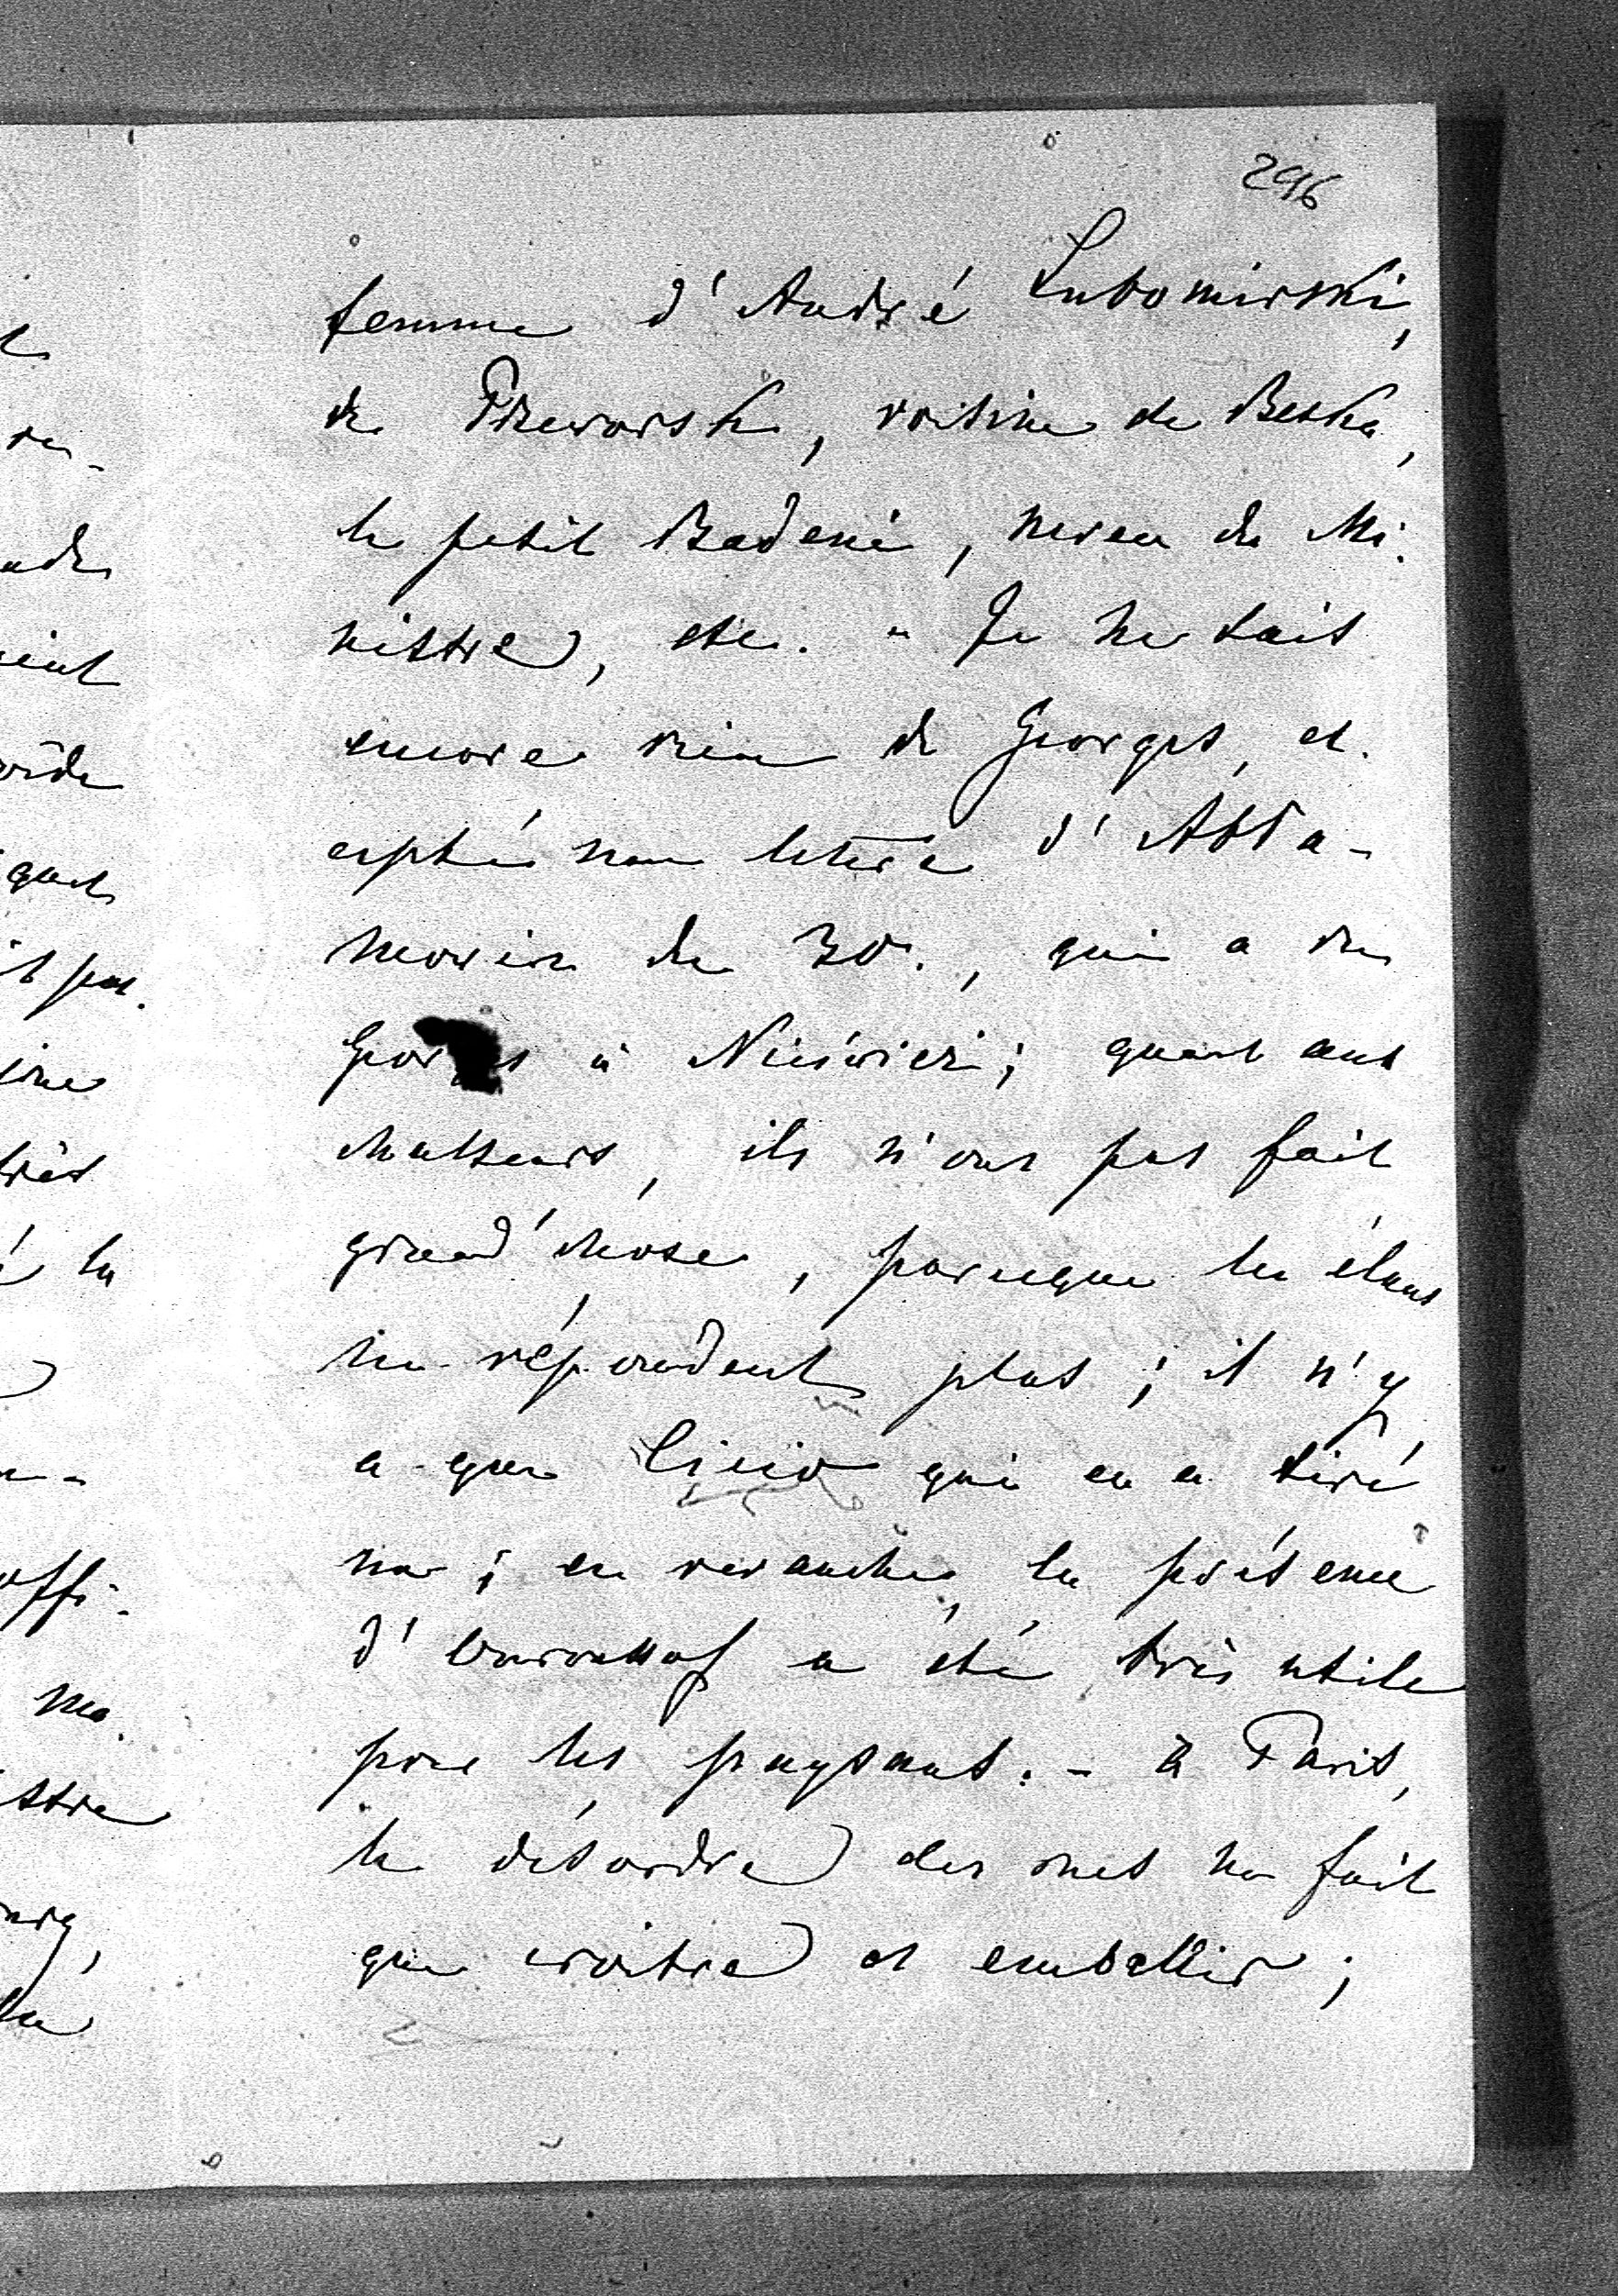 296
femme d'André Lubomirski,
de Przeworsk, voisine de Beska,
le petit Badeni, neveu du Mi-
nistre, etc. - Je ne sais
encore rien de Georges, et
une lettre d'Abra-
mowicz du 30, qui a vu
Georges à Nieśwież; quant aux
chasseurs, ils n'ont pas fait
grand'chose, parceque les élans
ne répondent plus; il n'y
a que qui en a tiré
un; en revanche, la présence
d' a été très utile
pour les paysans. - à Paris,
le désordre des rues ne fait
que croître et embellir;
it pas.
la
offi-